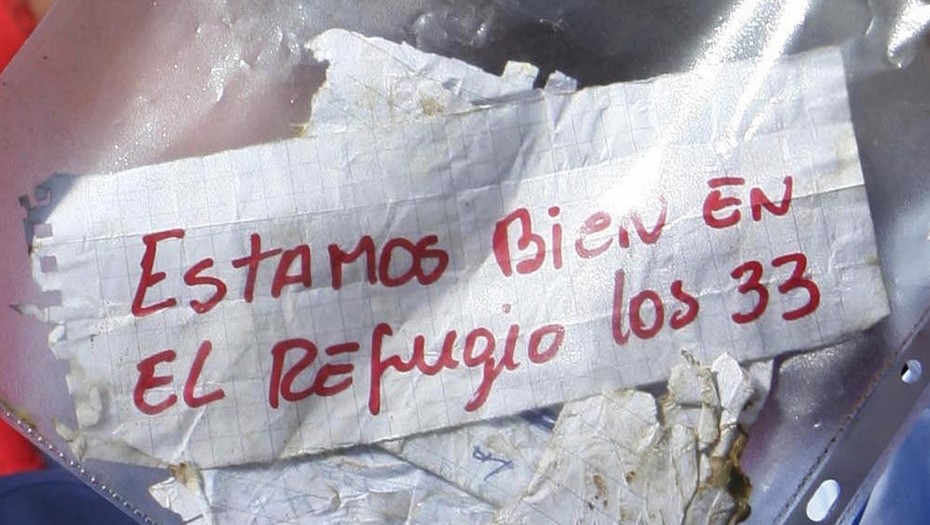 EstAMOS Bien EN
EL REfugio los 33